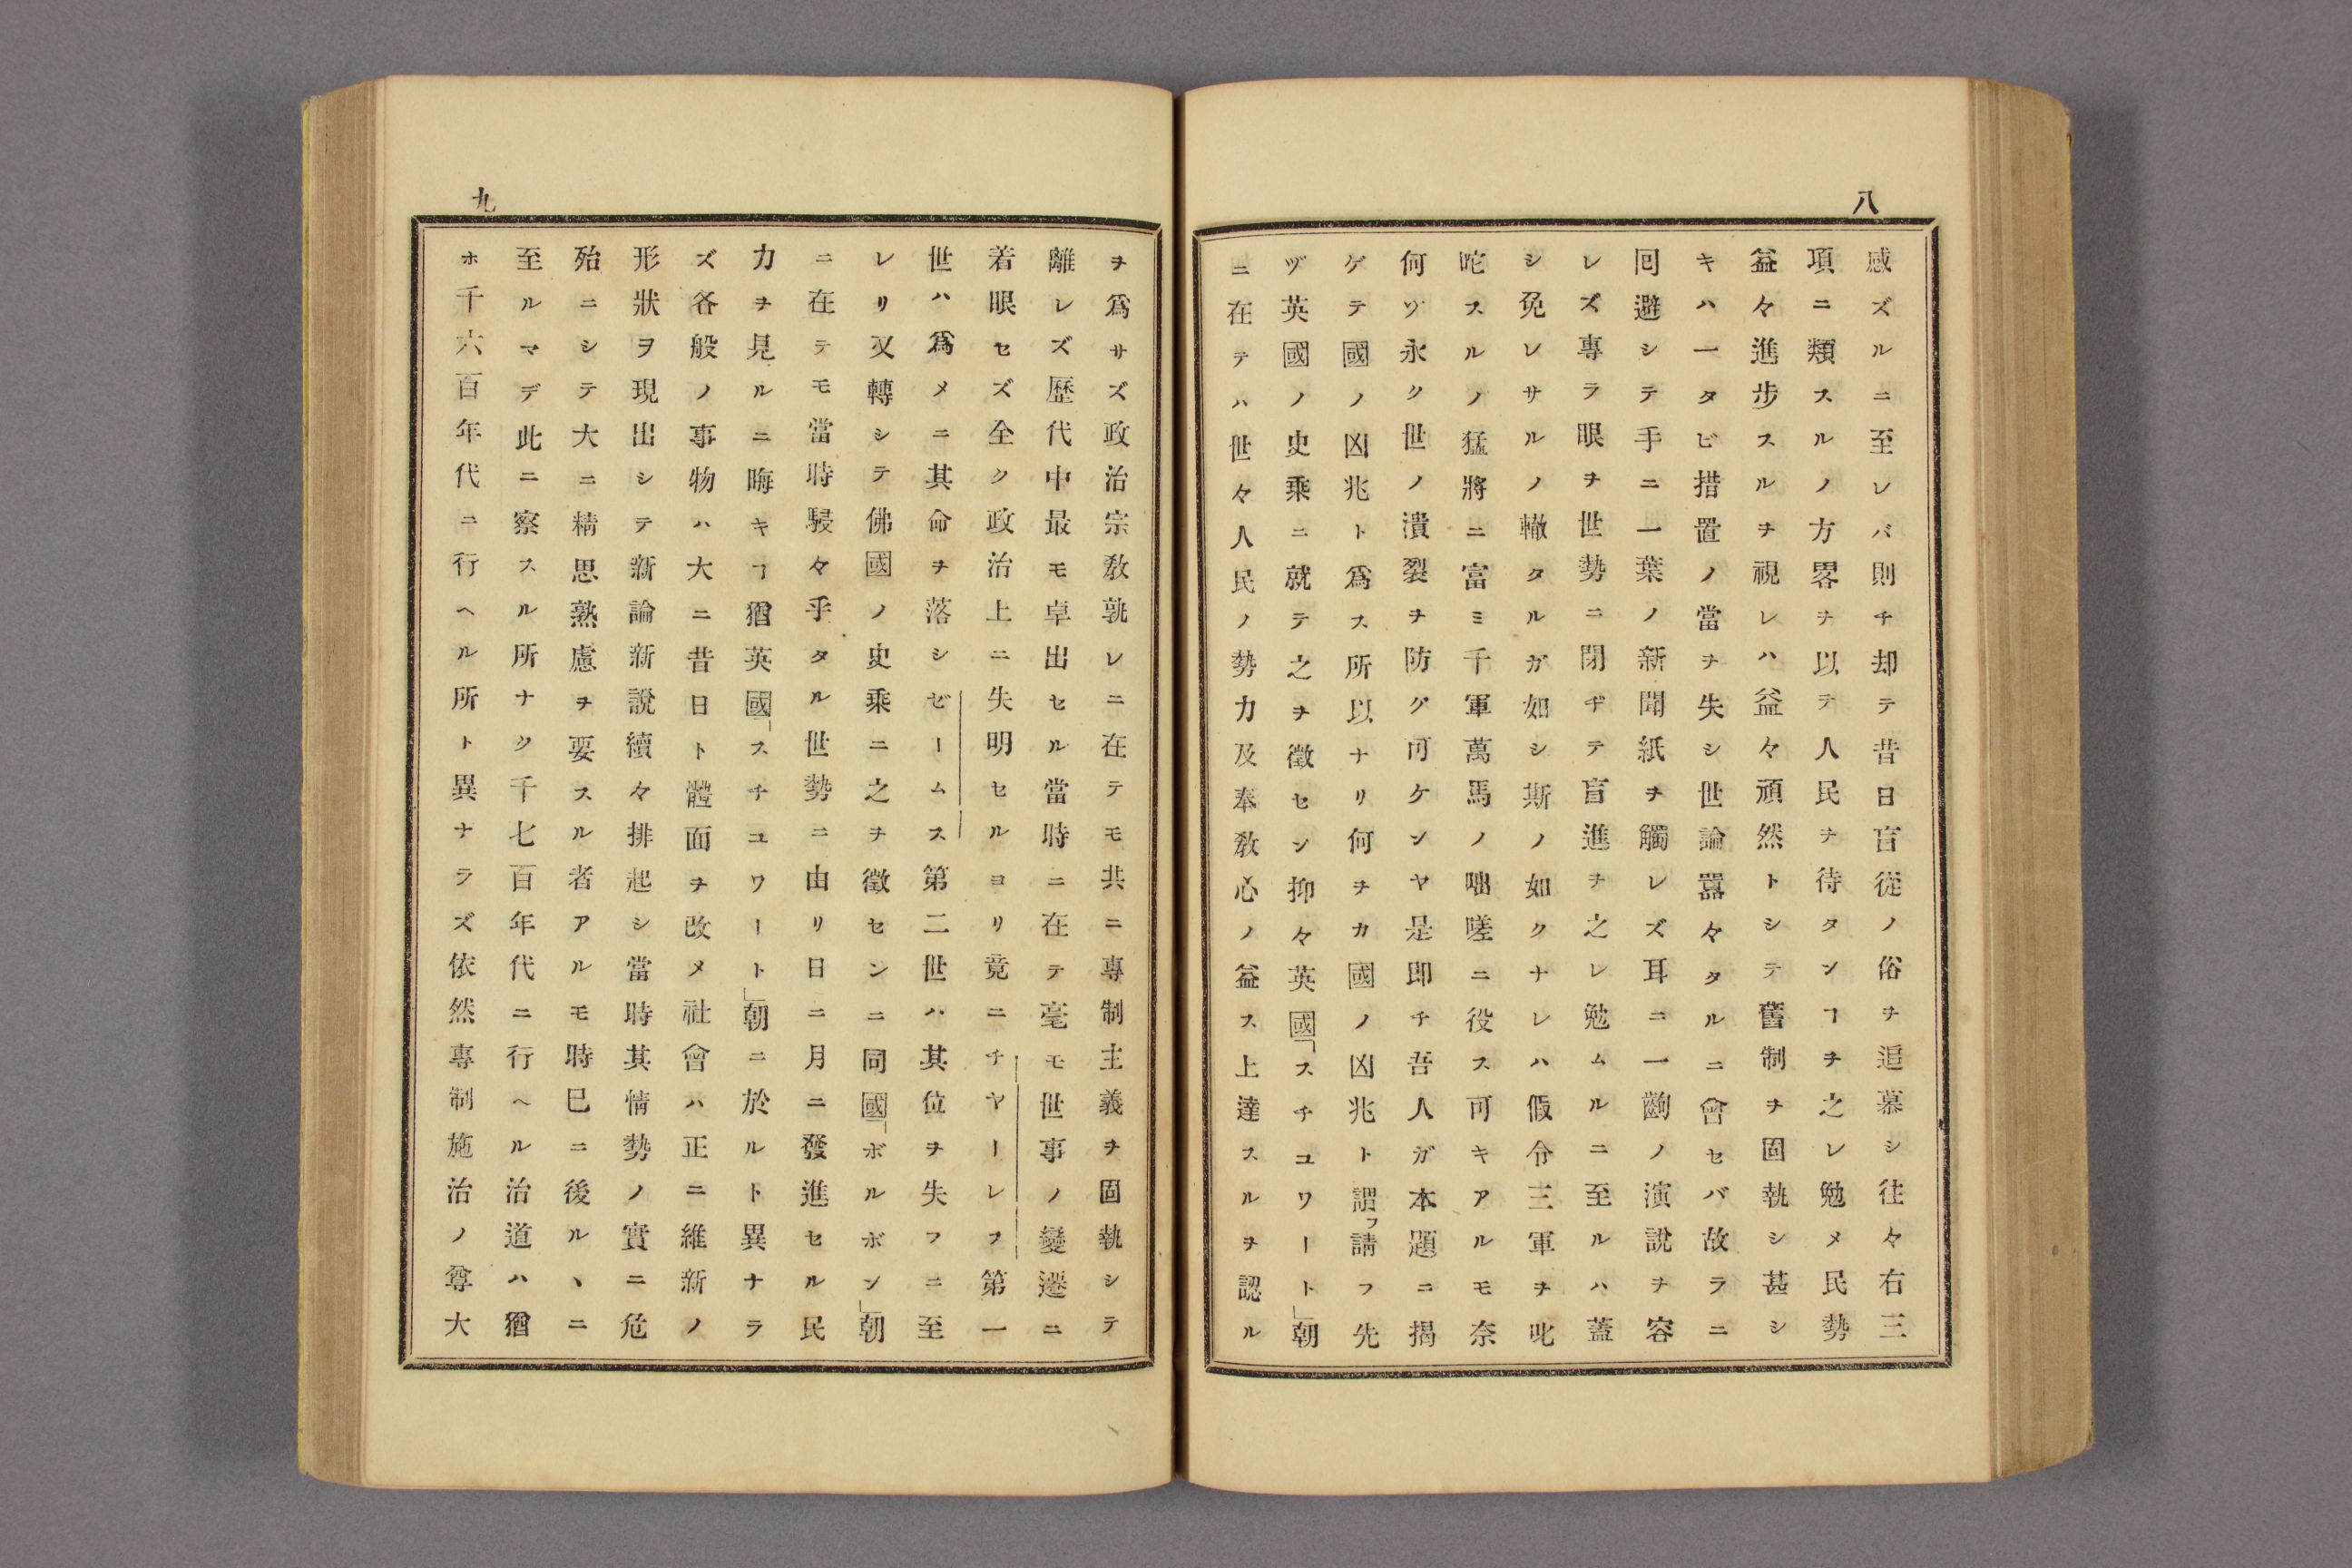 八
感ズルニ至レバ則チ却テ昔日盲從ノ俗ヲ追慕シ往々右三
項ニ類スルノ方畧ヲ以テ人民ヲ待タンヿヲ之レ勉メ民勢
益々進步スルヲ視レハ益々頑然トシテ舊制ヲ固執シ甚シ
キハ一タビ措置ノ當ヲ失シ世論囂々タルニ會セバ故ラニ
囘避シテ手ニ一葉ノ新聞紙ヲ觸レズ耳ニ一齣ノ演說ヲ容
レズ專ラ眼ヲ世勢ニ閉ヂテ盲進ヲ之レ勉ムルニ至ルハ蓋
シ免レサルノ轍タルガ如シ斯ノ如クナレハ假令三軍ヲ叱
咤スルノ猛將ニ富ミ千軍萬馬ノ咄嗟ニ役ス可キアルモ奈
何ヅ永ク世ノ潰裂ヲ防グ可ケンヤ是即チ吾人ガ本題ニ揭
ゲテ國ノ凶兆ト爲ス所以ナリ何ヲカ國ノ凶兆ト謂フ請フ先
ヅ英國ノ史乘ニ就テ之ヲ徵セン抑々英國「スチユワート」朝
ニ在テハ世々人民ノ勢力及奉敎心ノ益ス上達スルヲ認ル
九
ヲ爲サズ政治宗敎孰レニ在テモ共ニ專制主義ヲ固執シテ
離レズ歷代中最モ卓出セル當時ニ在テ毫モ世事ノ變遷ニ
若眼セズ全ク政治上ニ失明セルヨリ竟ニチヤーレス第一
世ハ爲メニ其命ヲ落シゼームス第二世ハ其位ヲ失フニ至
レリ又轉シテ佛國ノ史乘ニ之ヲ徵センニ同國「ボルボン」朝
ニ在テモ當時駸々乎タル世勢ニ由リ日ニ月ニ發進セル民
力ヲ見ルニ晦キヿ猶英國「スチユワート」朝ニ於ルト異ナラ
ズ各般ノ事物ハ大ニ昔日ト體面ヲ改メ社會ハ正ニ維新ノ
形狀ヲ現出シテ新論新說續々排起シ當時其情勢ノ實ニ危
殆ニシテ大ニ精思熟慮ヲ要スル者アルモ時巳ニ後ルヽニ
至ルマデ此ニ察スル所ナク千七百年代ニ行ヘル治道ハ猶
ホ千六百年代ニ行ヘル所ト異ナラズ依然專制施治ノ尊大